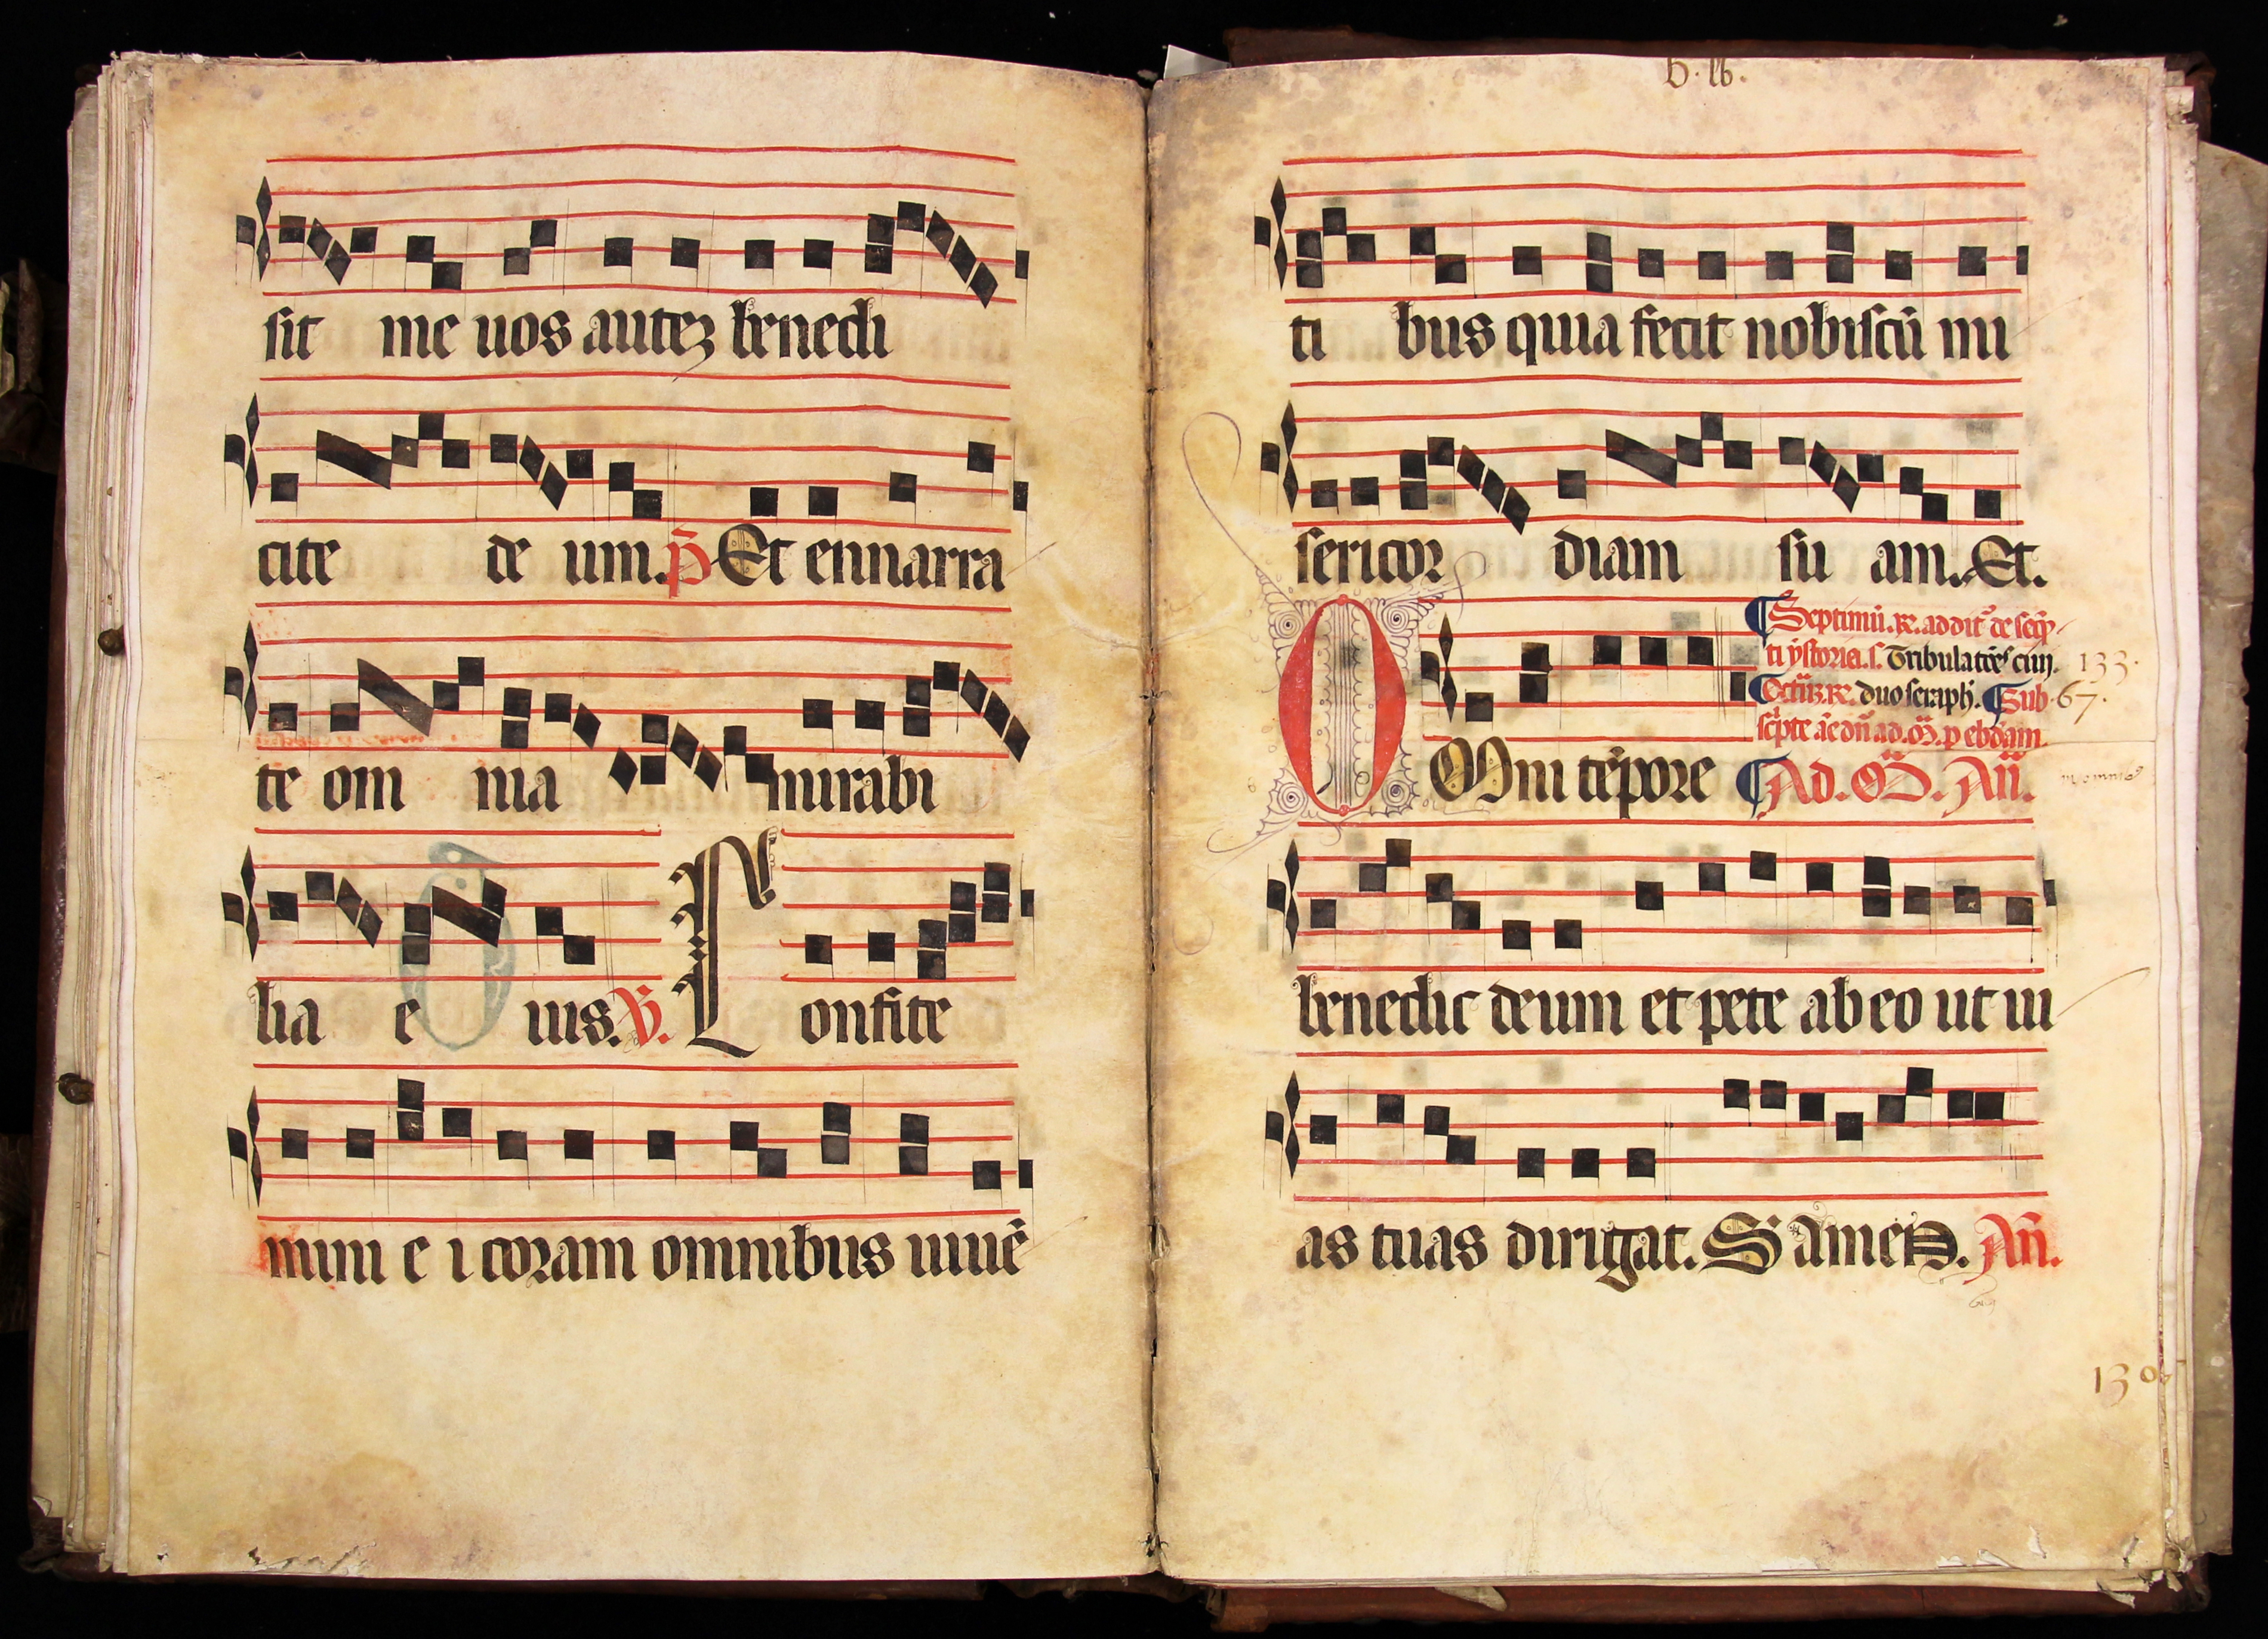 sit me uos auteʒ benedi
cite de um. p̄ Et ennarra
te om nia mirabi
lia e ius. V̄. C onfite
mini e i coram omnibus uiuē
ti bus quia fecit nobiscū mi
sericor diam su am. Et.
Septimū. R̄. addit᷑ de seq̄n
ti ystoria. s. Tribulatōēs ciuj. 133.
Octauȝ. R̄. duo seraph̄. Sub 67.
scpte āē dn̄r ad. M. p ebdam.
O Mni tēpore Ad. M. An̄.
benedic deum et pete ab eo ut ui
as tuas dirigat. S amen. An̄.
130